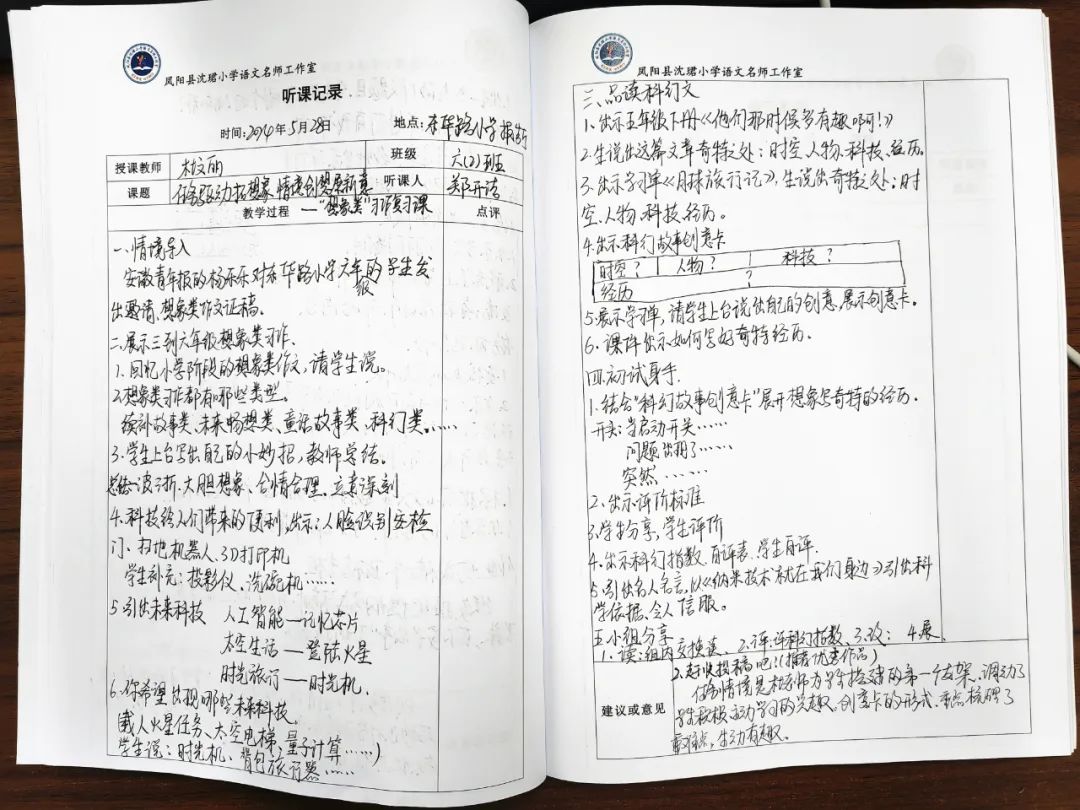 凤阳县沈珺小学语文名师工作室
听课记录
时间:2024年5月28日 地点:东华路小学报告厅
授课教师 班级 六(2)班
课题 任务驱动拓想象 情境创想展新意 听课人 郑开洁
教学过程 —“想象类”习作复习课 点评
一、情境导入
安徽青年报的杨乐乐对东华路小学六年级的学生发
出邀请,想象类作文证稿。
二、展示三到六年级想象类习作、
1、回忆小学阶段的想象类作文,请学生说。
2、想象类习作都有哪些类型。
续补故事类、未来畅想类、童话故事类、科幻类。……
3、学生上台写出自己的小妙招,教师总结。
总结:一波三折、大胆想象、合情合理、立意深刻
4、科技给人们带来的便利,出示:人脸识别安检
门、扫地机器人、3D打印机
学生补充:投影仪、洗碗机……
5、引出未来科技 人工智能—记忆芯片
太空生活—登陆火星
时光旅行—时光机、
6、你希望出现哪些未来科技。
(载人火星任务、太空电梯,量子计算……)
学生说:时光机、背包旅行器……
凤阳县沈珺小学语文名师工作室
三、品读科幻文
1、出示五年级下册《他们那时候多有趣啊!》
2、生说出这篇文章奇特之处:时空、人物、科技、经历。
3、出示学习单《月球旅行记》,生说出奇特之处:时
空、人物、科技、经历。
4、出示科幻故事创意卡
时空? 人物? 科技?
经历 ?
5、展示学习单,请学生上台说出自己的创意,展示创意卡。
6、课件出示如何写好奇特经历.
四、初试身手.
1、结合“科幻故事创意卡”展开想象写奇特的经历.
开头:当启动开关……
问题出现了……
突然……
2、出示评价标准
3、学生分享,学生评价
4、出示科幻指数,自评表,学生自评.
5、引出名人名言,以《纳米技术就在我们身边》引出科
学依据、令人信服。
五、小组分享
1、读:组内交换读 2、评:评科幻指数、3、改: 4、展、
2、赶快投稿吧!(推荐优秀作品)
建议或意见
任务情境是老师为学生搭建的第一个支架,调动了
学生积极主动学习的兴趣,创意卡的形式,
重难点,生动有趣。